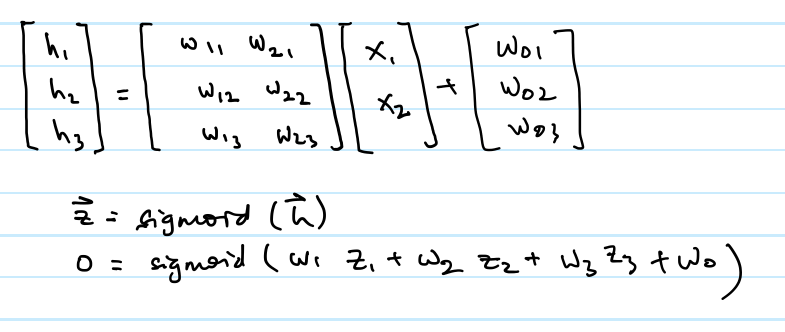 [h₁ h₂ h₃] = [w₁₁ w₂₁ w₁₂ w₂₂ w₁₃ w₂₃] [x₁ x₂] + [w₀₁ w₀₂ w₀₃]
z⃗ = sigmoid (h⃗)
O = sigmoid (w₁ z₁ + w₂ z₂ + w₃ z₃ + w₀)